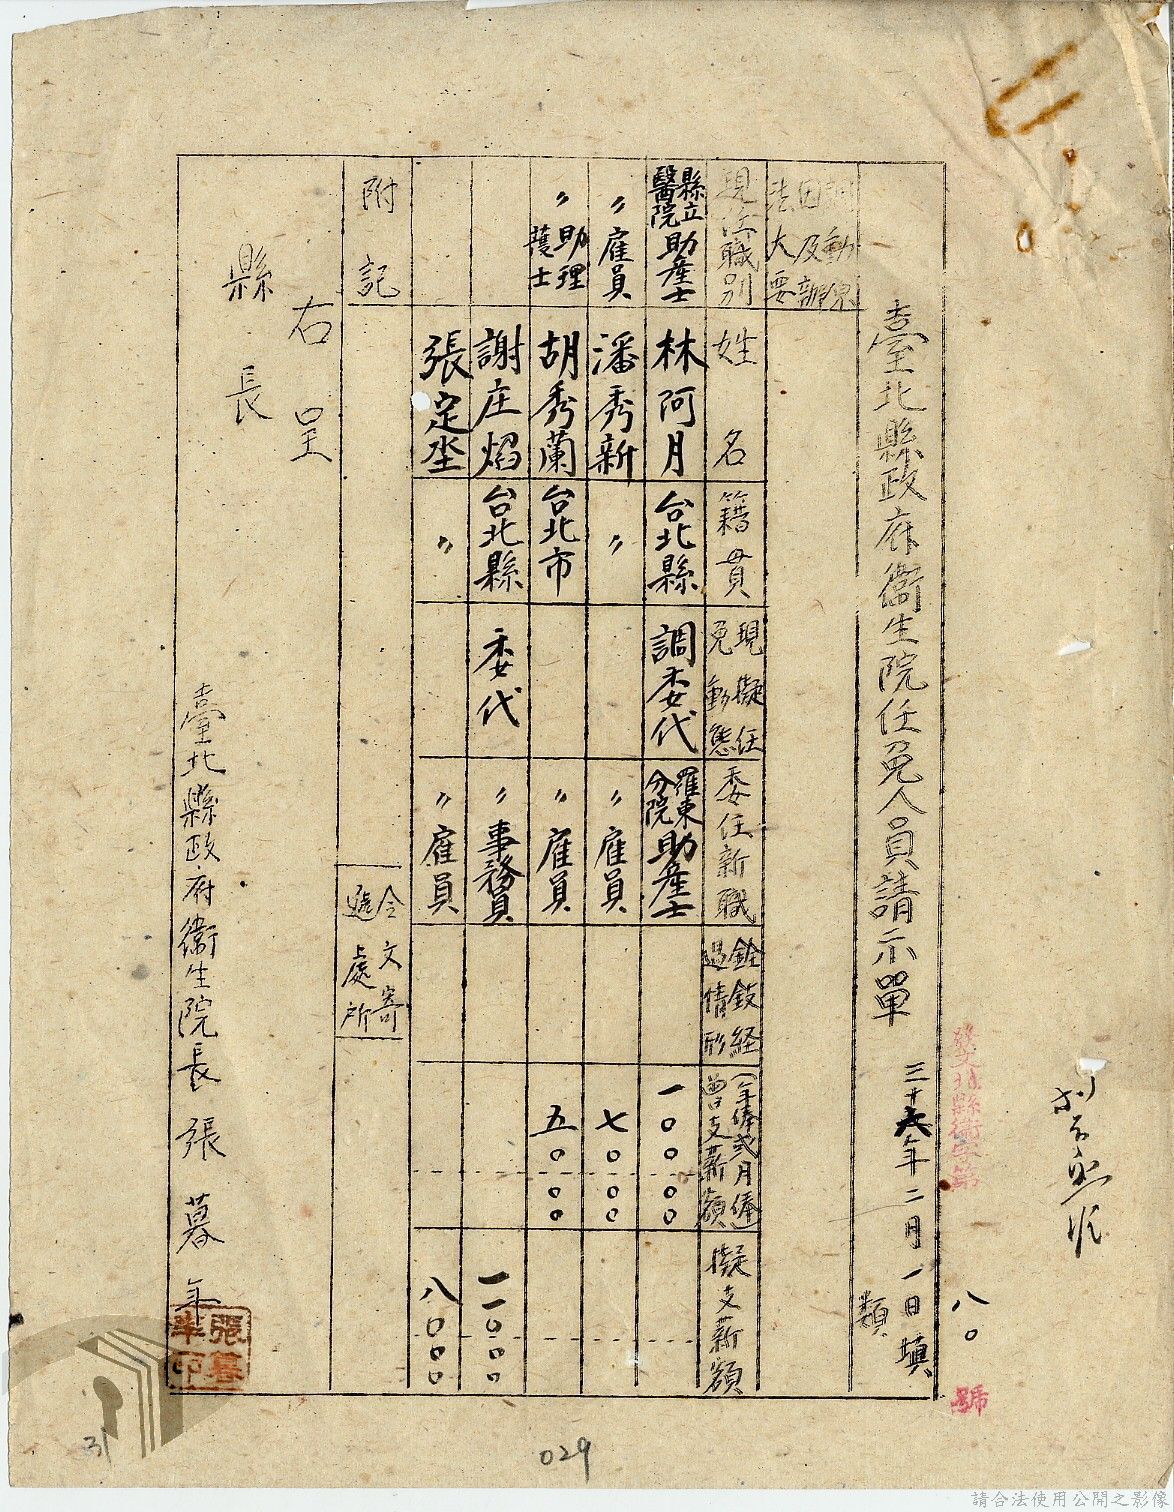 發文北縣衛字第 八〇 號
臺北縣政府衛生院任免人員請示單 三十六年二月一日填
類
調動原因及辦法大要
現任職別 姓名 籍貫 現擬任免動態 委任新職 銓敍経過情形 曾支薪額(年俸或月俸) 擬支薪額
縣立醫院助產士 林阿月 台北縣 調委代 羅東分院助產士 一〇〇〇〇
〃雇員 潘秀新 〃 〃雇員 七〇〇〇
〃助理護士 胡秀蘭 台北市 〃雇員 五〇〇〇
謝庄熖 台北縣 委代 〃事務員 一一〇〇〇
張定坔 〃 〃雇員 八〇〇〇
附記
令文寄遞處所
右呈
縣長
臺北縣政府衛生院長張暮年
張暮年印
31
029
請合法使用公開之影像